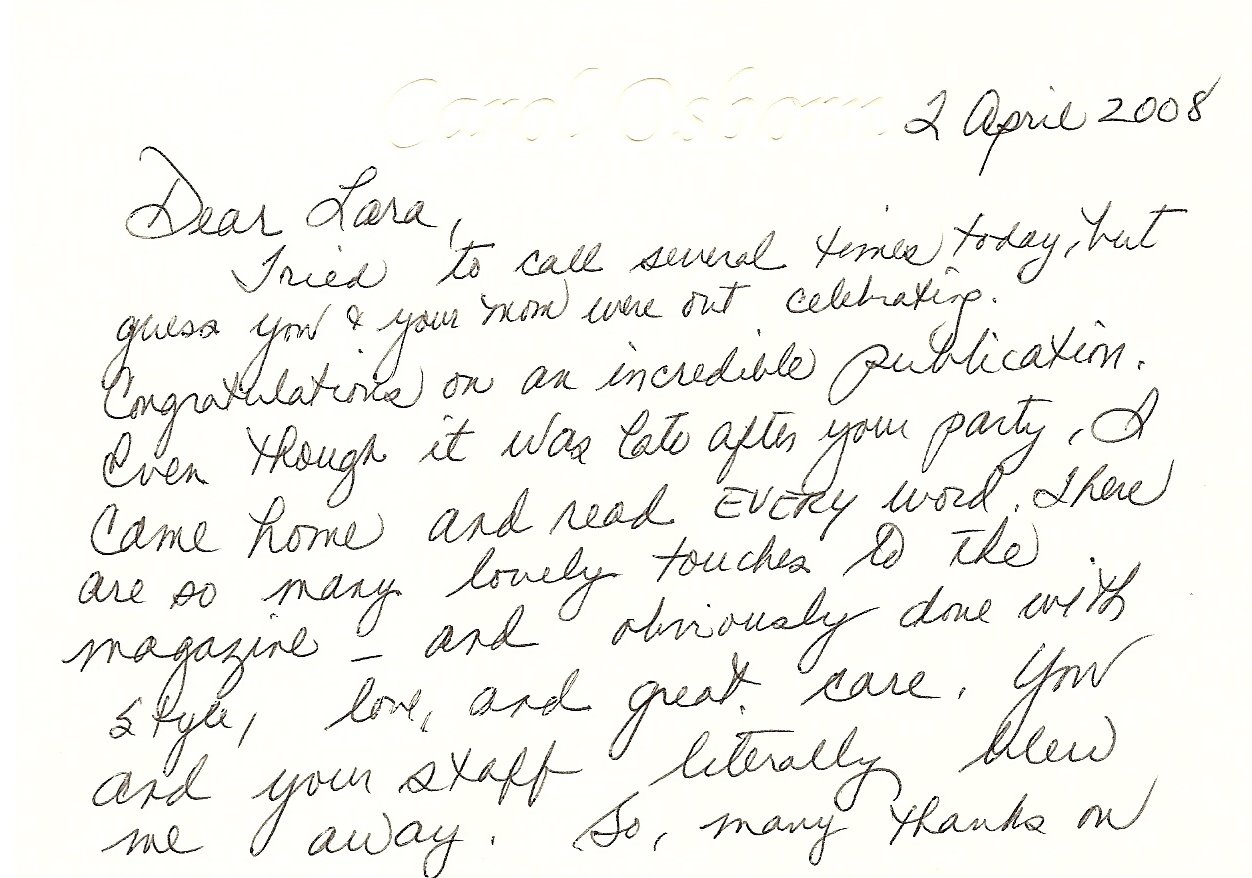 Carol Osborn
2 April 2008
Dear Lara,
Tried to call several times today, but
guess you & your mom were out celebrating.
Congratulations on an incredible publication.
Even though it was late after your party, I
came home and read EVERY word. There
are so many lovely touches to the
magazine – and obviously done with
style, love, and great care. You
and your staff literally blew
me away. So, many thanks on